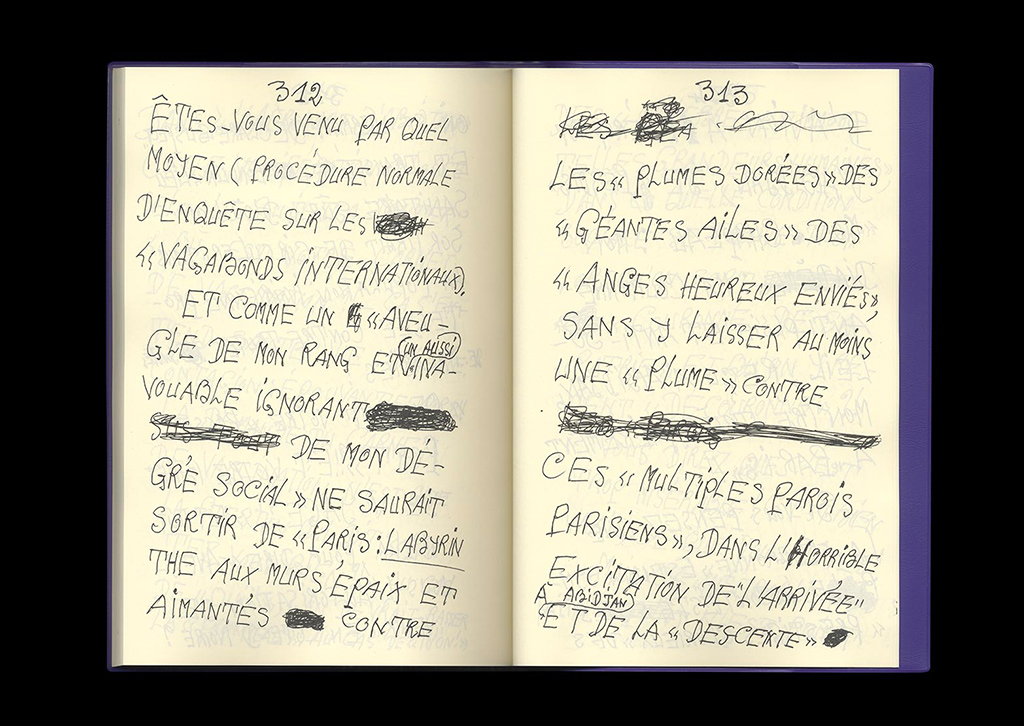 312
ÊTES-VOUS VENU PAR QUEL
MOYEN (PROCÉDURE NORMALE
D'ENQUÊTE SUR LES
«VAGABONDS INTERNATIONAUX).
ET COMME UN «AVEU-
UN AUSSI
GLE DE MON RANG ET INA-
VOUABLE IGNORANT
DE MON DÉ-
GRÉ SOCIAL» NE SAURAIT
SORTIR DE «PARIS: LABYRIN
THE AUX MURS ÉPAIX ET
AIMANTÉS CONTRE
313
LES «PLUMES DORÉES» DES
«GÉANTES AILES» DES
«ANGES HEUREUX ENVIÉS»,
SANS Y LAISSER AU MOINS
UNE «PLUME» CONTRE
CES «MULTIPLES PAROIS
PARISIENS», DANS L'HORRIBLE
EXCITATION DE "L'ARRIVÉE"
À ABIDJAN
ET DE LA «DESCENTE»